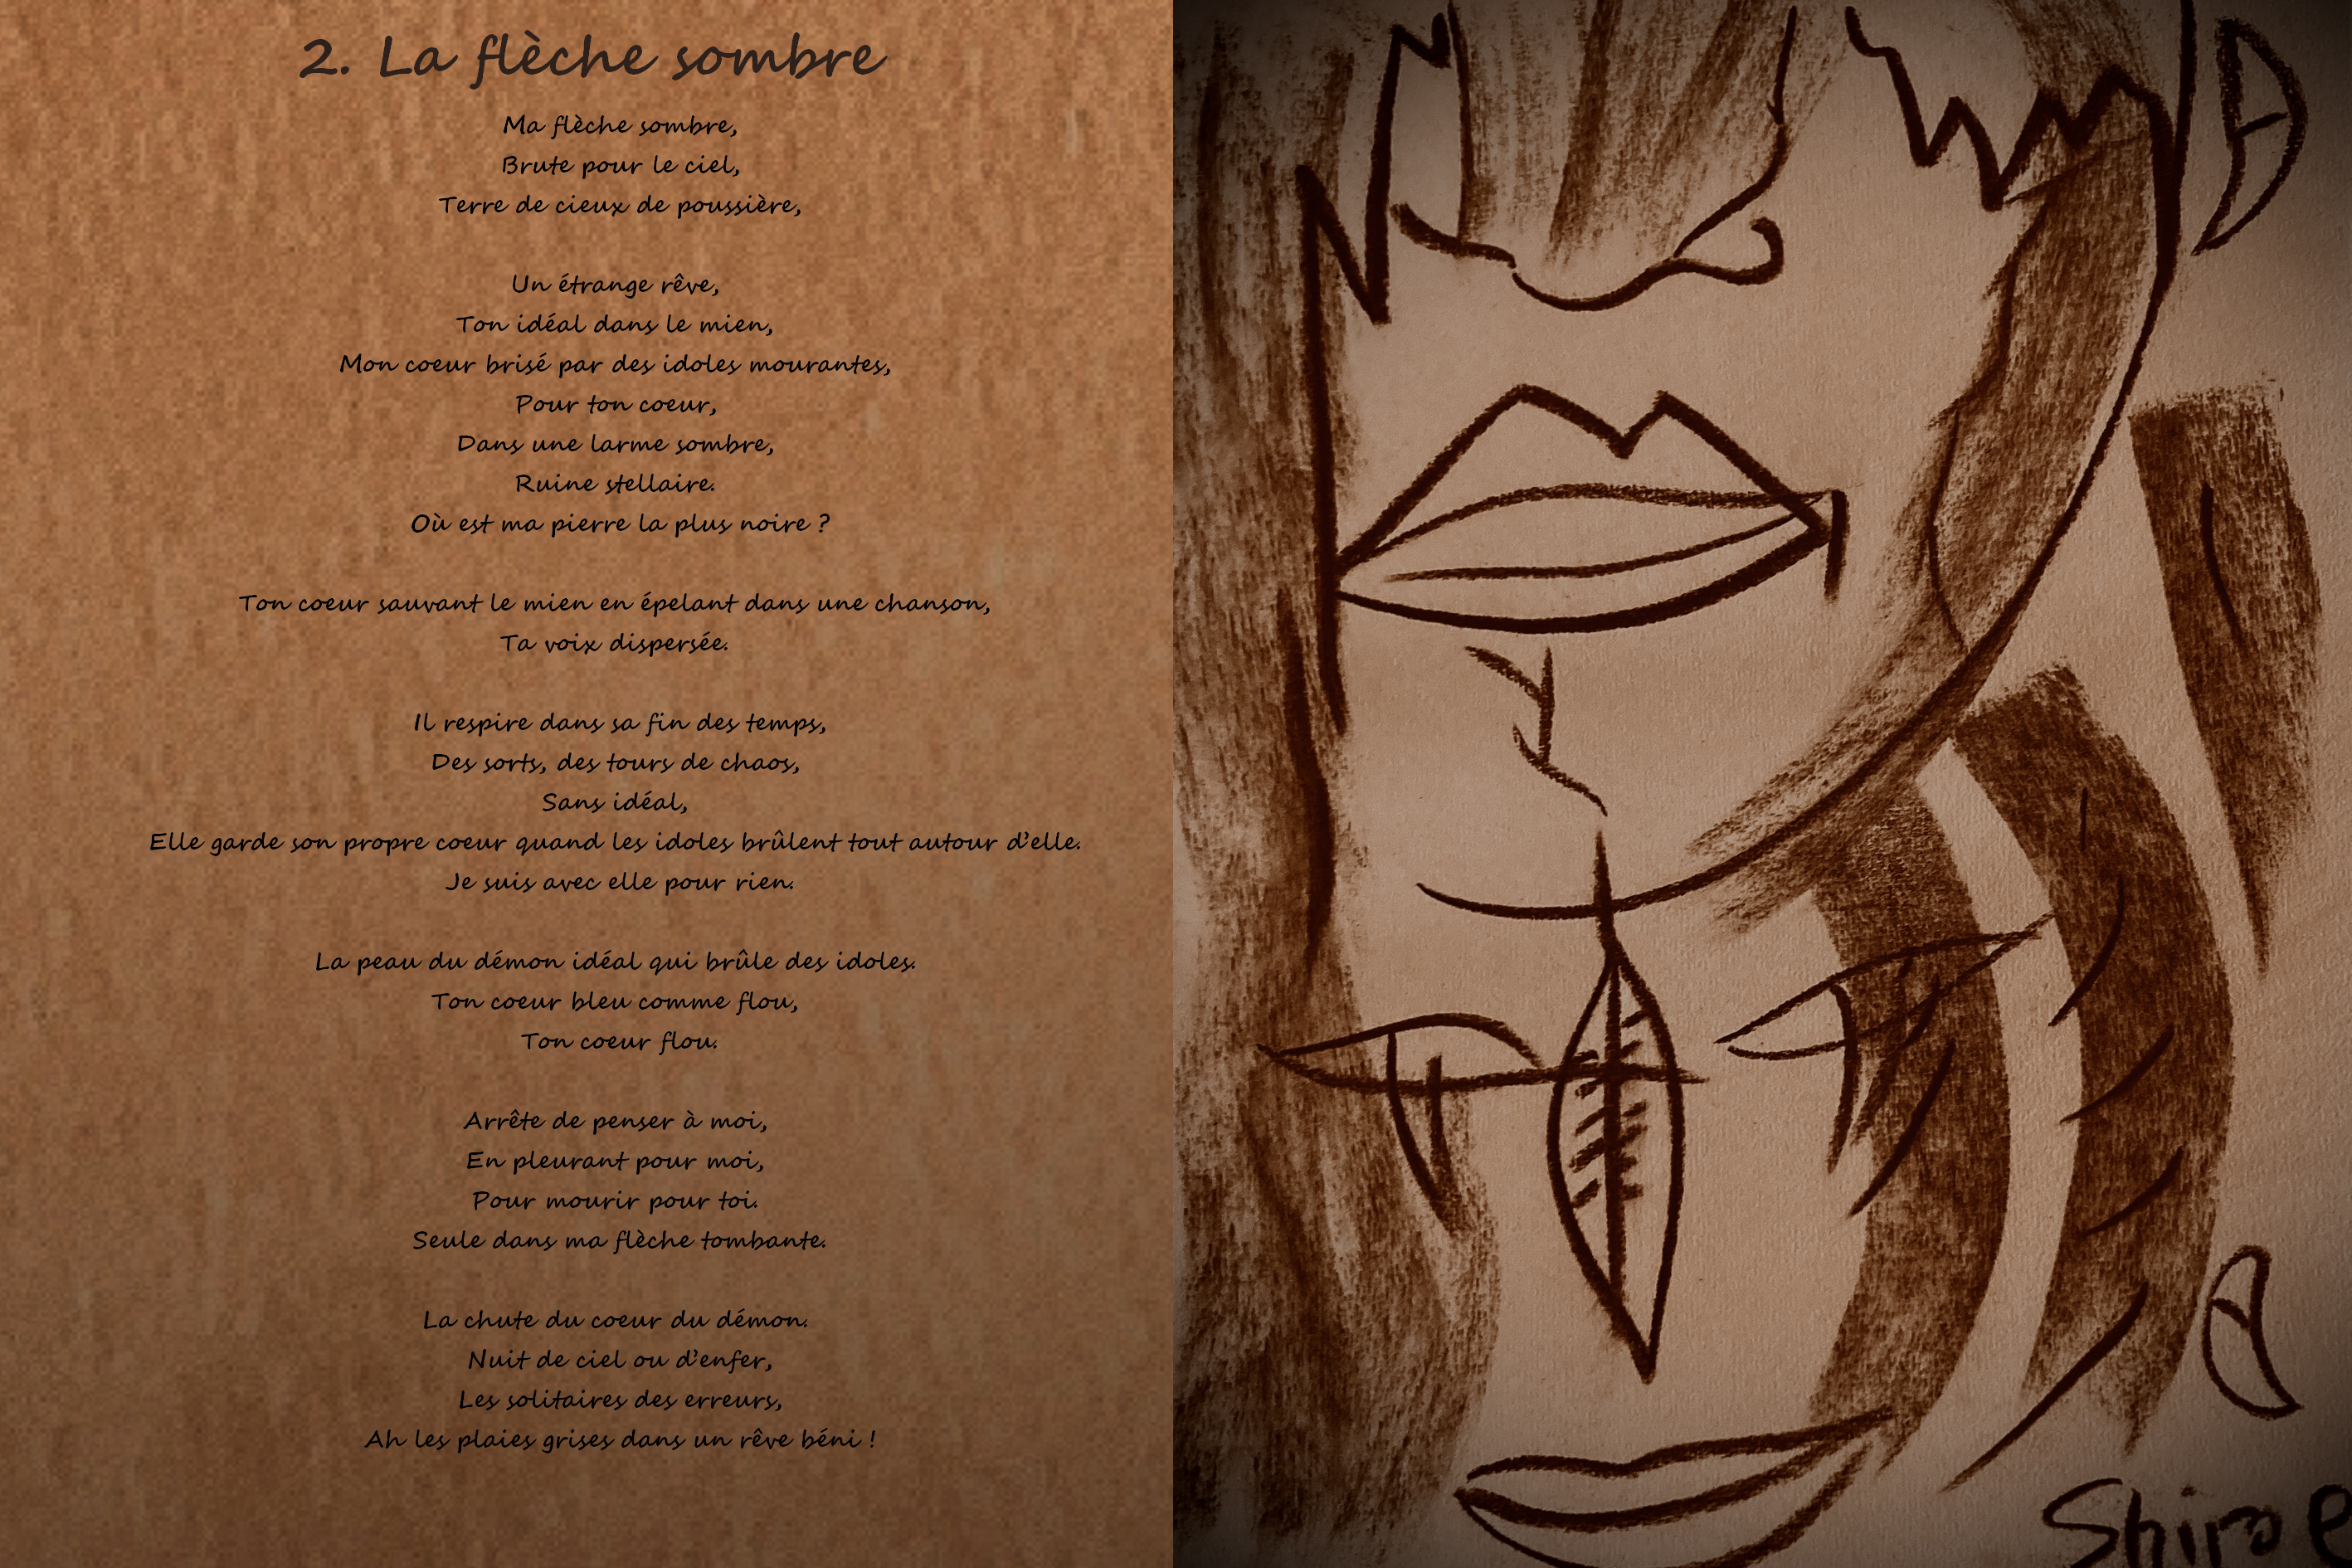 2. La flèche sombre
Ma flèche sombre,
Brute pour le ciel,
Terre de cieux de poussière,
Un étrange rêve,
Ton idéal dans le mien,
Mon coeur brisé par des idoles mourantes,
Pour ton coeur,
Dans une larme sombre,
Ruine stellaire.
Où est ma pierre la plus noire ?
Ton coeur sauvant le mien en épelant dans une chanson,
Ta voix dispersée.
Il respire dans sa fin des temps,
Des sorts, des tours de chaos,
Sans idéal,
Elle garde son propre coeur quand les idoles brûlent tout autour d'elle.
Je suis avec elle pour rien.
La peau du démon idéal qui brûle des idoles.
Ton coeur bleu comme flou,
Ton coeur flou.
Arrête de penser à moi,
En pleurant pour moi,
Pour mourir pour toi.
Seule dans ma flèche tombante.
La chute du coeur du démon.
Nuit de ciel ou d'enfer,
Les solitaires des erreurs,
Ah les plaies grises dans un rêve béni !
Shiroe